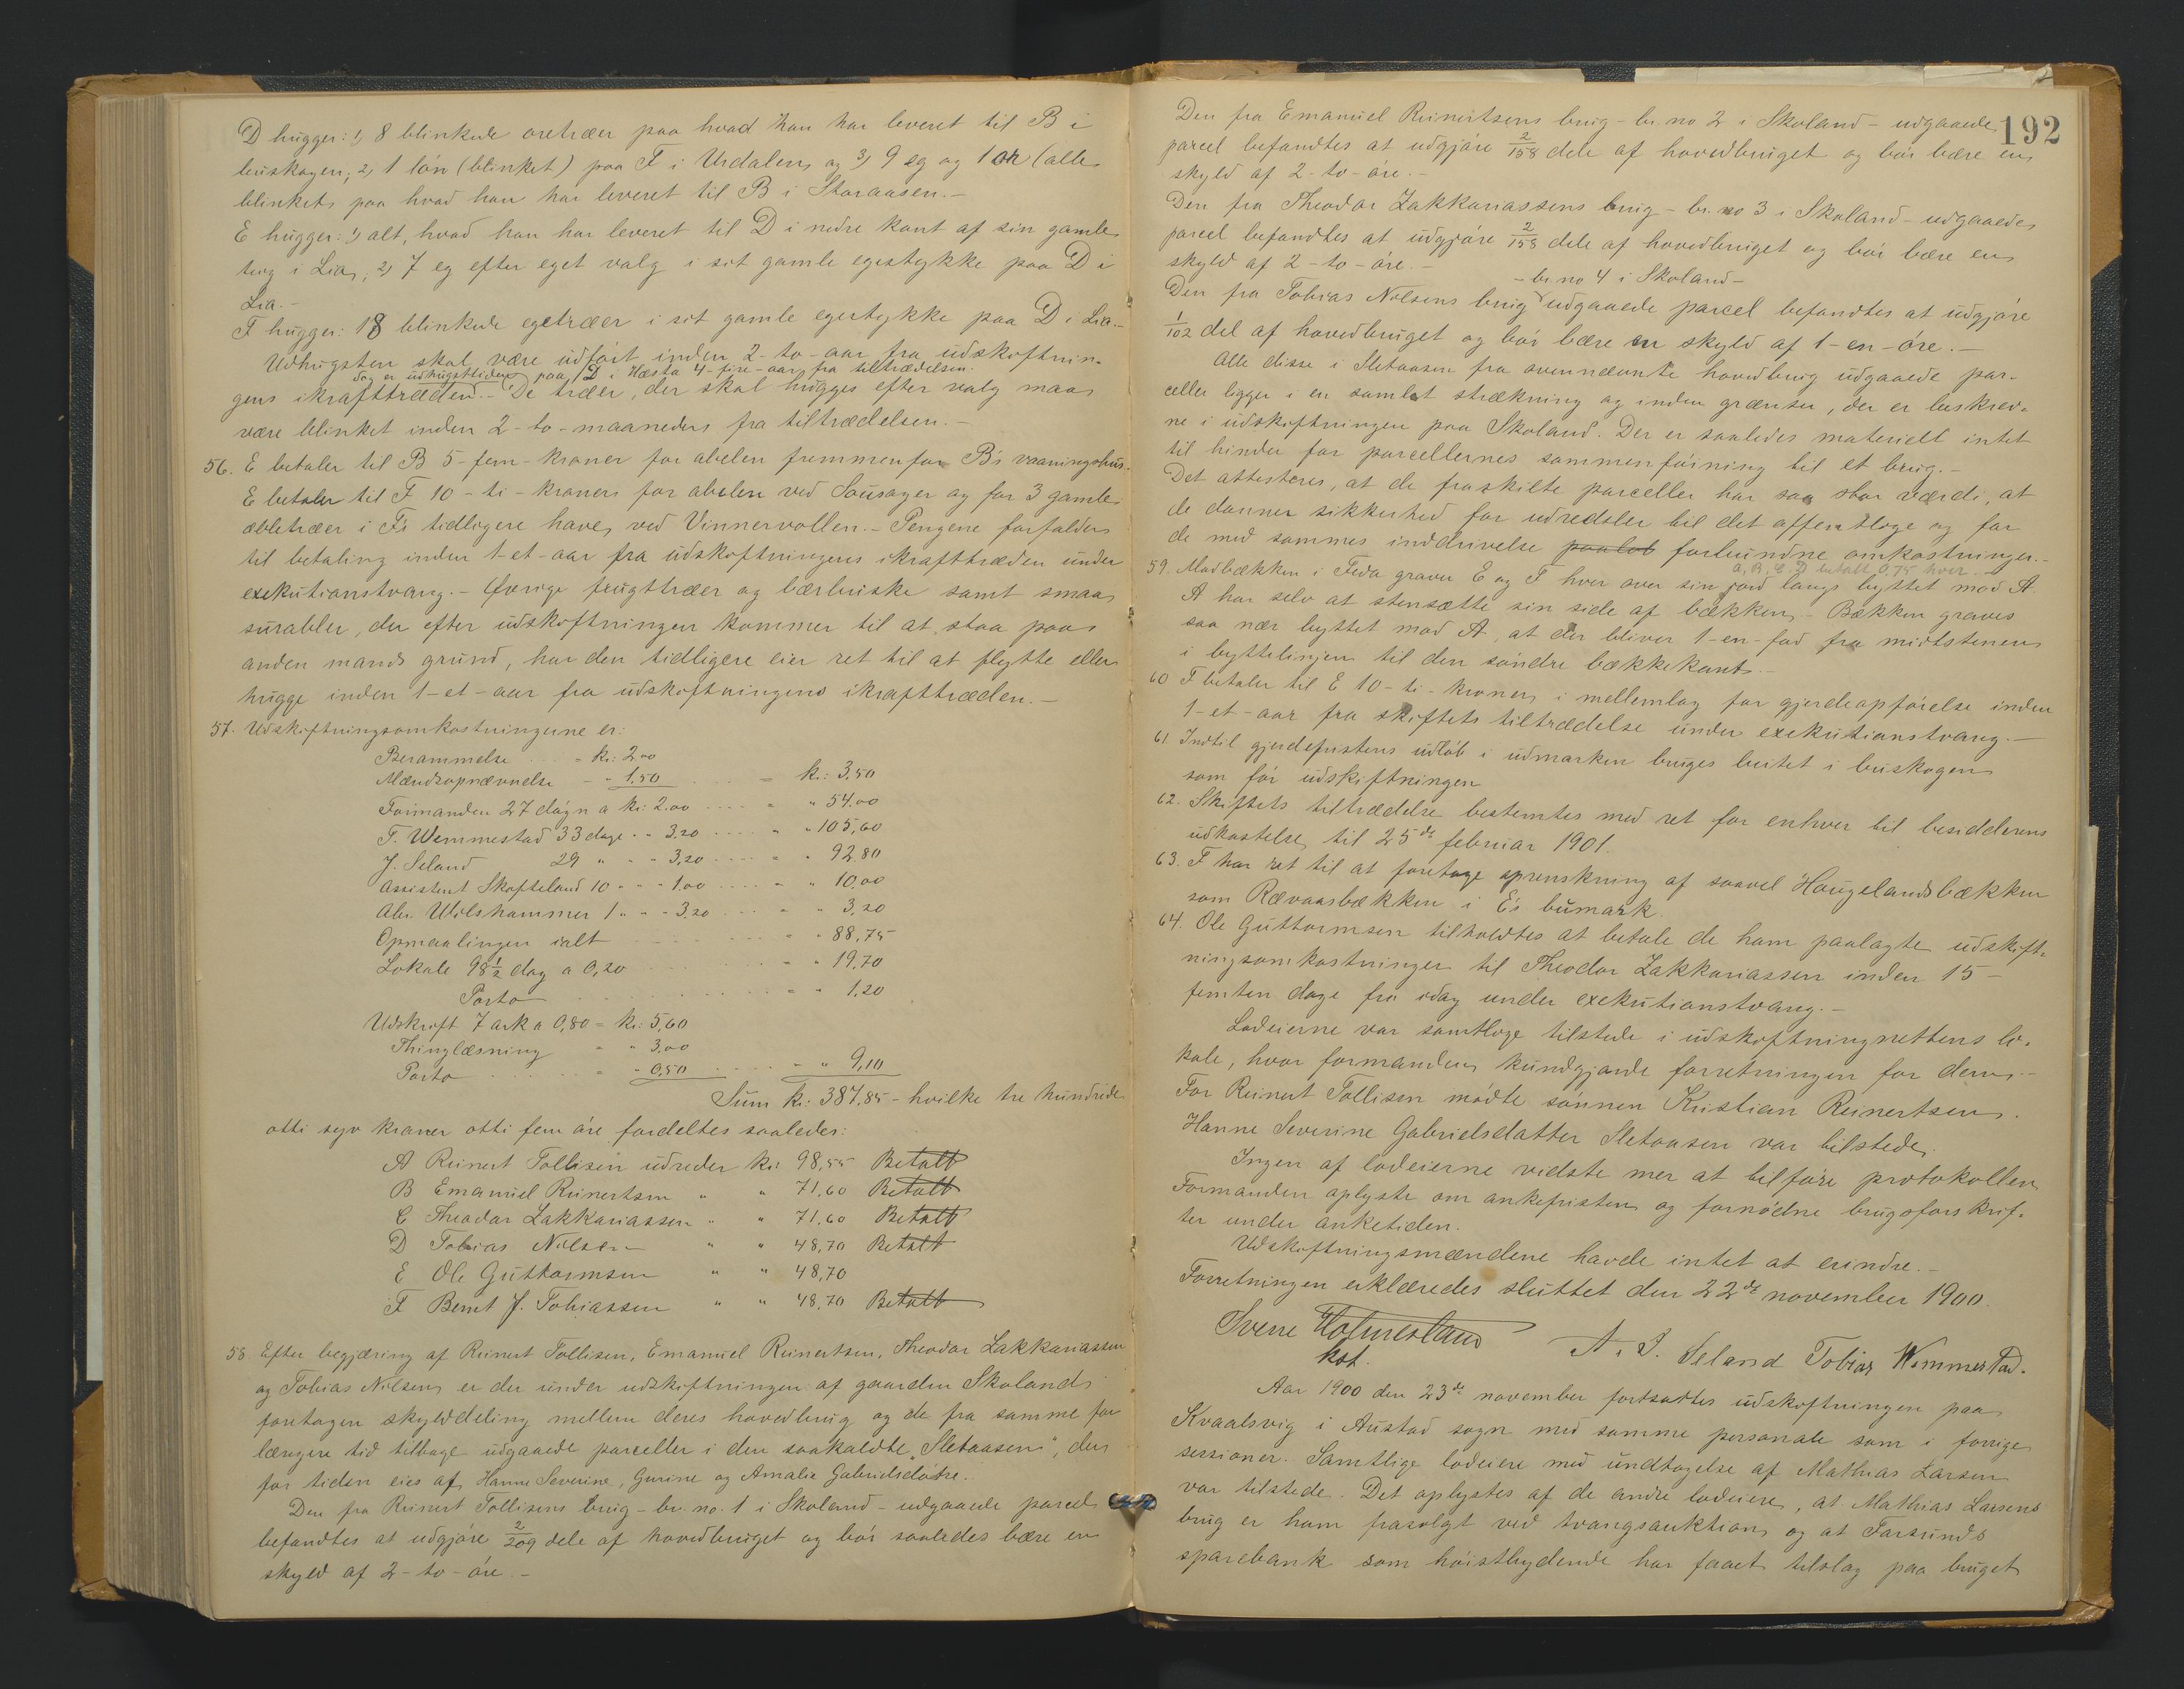 D hugger: 1, 8 blinkede oretræer paa hvad han har leveret til B i
buskogen; 2, 1 lön (blinket) paa F i Urdalen, og 3, 9 eg og 1 or (alle
blinket) paa hvad han har leveret til B i Storaasen.-
E hugger: 1, alt, hvad han har leveret til D i nedre kant af sin gamle
teig i Lia; 2, 7 eg efter eget valg i sit gamle egestykke paa D i
Lia.-
F hugger: 18 blinkede egetræer i sit gamle egestykke paa D i Lia.-
Udhugsten skal være udført inden 2-to-aar fra udskiftnin-
dog er udhugsttiden paa D i Hæsta 4-fire-aar fra tiltrædelsen.
gens ikrafttræden.- De træer, der skal hugges efter valg maa
være blinket inden 2-to-maaneder fra tiltrædelsen.-
56. E betaler til B 5-fem-kroner for abelen fremmenfor B's vaaningshus.
E betaler til F 10-ti-kroner for abelen ved Sousager og for 3 gamle
æbletræer i F's tidligere have, ved Vinnervollen.- Pengene forfalder
til betaling inden 1-et-aar fra udskiftningens ikrafttræden under
exekutionstvang.- Øvrige frugttræer og bærbuske samt smaa
surabler, der efter udskiftningen kommer til at staa paa
anden mands grund, har den tidligere eier ret til at flytte eller
hugge inden 1-et-aar fra udskiftningens ikrafttræden.-
57. Udskiftningsomkostningerne er:
Berammelse - kr: 2.00
Mændsopnævnelse - " 1.50 = kr: 3,50
Formanden 27 døgn a kr: 2.00 = " 54.00
T. Wemmestad 33 dage " " 3.20 = " 105,60
J. Seland 29 " " " 3,20 = " 92.80
Assistent Skofteland 10 " " " 1.00 = " 10.00
Abr. Wilshammer 1 " " " 3.20 = " 3,20
Opmaalingen ialt = " 88,75
Lokale 98½ dag a 0,20 = " 19,70
Porto = " 1,20
Udskrift 7 ark a 0,80 = kr: 5,60
Thinglæsning = " 3.00
Porto = " 0,50 = " 9,10
Sum kr: 387,85 - hvilke tre hundrede
otti syv kroner otti fem øre fordeltes saaledes:
A Reinert Tollisen udreder kr: 98,55 Betalt
B Emanuel Reinertsen " " 71,60 Betalt
C Theodor Zakkariassen " " 71,60 Betalt
D Tobias Nilsen " " 48,70 Betalt
E Ole Guttormsen " " 48,70
F Bernt J. Tobiassen " " 48,70 Betalt
58 Efter begjæring af Reinert Tollisen, Emanuel Reinertsen, Theodor Zakkariassen
og Tobias Nilsen, er der under udskiftningen af gaarden Skoland
foretagen skylddeling mellem deres hovedbrug og de fra samme for
længere tid tilbage udgaaede parceller i den saakaldte "Sletaasen", der
for tiden eies af Hanne Severine, Gurine og Amalie Gabrielsdøtre.
Den fra Reinert Tollisens brug - br. no. 1 i Skoland - udgaaede parcel
befandtes at udgjøre 2/209 dele af hovedbruget og bør saaledes bære en
skyld af 2-to-øre.-
192
Den fra Emanuel Reinertsens brug - br. no 2 i Skoland - udgaaede
parcel befandtes at udgjøre 2/158 dele af hovedbruget og bør bære en
skyld af 2-to-øre.-
Den fra Theodor Zakkariassens brug - br. no 3 i Skoland - udgaaede
parcel befandtes at udgjøre 2/158 dele af hovedbruget og bør bære en
skyld af 2-to-øre.-
- br. no 4 i Skoland -
Den fra Tobias Nilsens brug udgaaede parcel befandtes at udgjøre
1/102 del af hovedbruget og bør bære en skyld af 1-en-øre.-
Alle disse i Sletaasen fra ovennævnte hovedbrug udgaaede par-
celler ligger i en samlet strækning og inden grænser, der er beskrev-
ne i udskiftningen paa Skoland. Der er saaledes materielt intet
til hinder for parcellernes sammenføining til et brug.-
Det attesteres, at de fraskilte parceller har saa stor værdi, at
de danner sikkerhed for udredsler til det offentlige og for
de med sammes inddrivelse paaløb forbundne omkostninger.-
A, B, C, D betalt 0,75 hver
59. Madbækken i Feda graver E og F hver over sin jord langs byttet mod A.
A har selv at stensætte sin side af bækken.- Bækken graves
saa nær byttet mod A, at der bliver 1-en-fod fra midtstenen
i byttelinjen til den søndre bækkekant.-
60 F betaler til E 10-ti-kroner i mellemlag for gjerdeopførelse inden
1-et-aar fra skiftets tiltrædelse under exekutionstvang.-
61. Indtil gjerdefristens udløb i udmarken bruges beitet i buskogen
som før udskiftningen
62. Skiftets tiltrædelse bestemtes med ret for enhver til besidderens
udkastelse, til 25de februar 1901.
63. F har ret til at foretage oprenskning af saavel Haugelandsbækken
som Rævaasbækken i E's bumark.
64. Ole Guttormsen tilholdtes at betale de ham paalagte udskift-
ningsomkostninger til Theodor Zakkariassen inden 15-
femten dage fra idag under exekutionstvang.-
Lodeierne var samtlige tilstede i udskiftningsrettens lo-
kale, hvor formanden kundgjorde forretningen for dem.-
For Reinert Tollisen mødte sønnen Kristian Reinertsen.
Hanne Severine Gabrielsdatter Sletaasen var tilstede.
Ingen af lodeierne vidste mer at tilføre protokollen
Formanden oplyste om ankefristen og fornødne brugsforskrif-
ter under anketiden.
Udskiftningsmændene havde intet at erindre.-
Forretningen erklæredes sluttet den 22de november 1900.
Sverre Holmesland
kst.
N. J. Seland Tobias Wemmestad.
Aar 1900 den 23de november fortsattes udskiftningen paa
Kvaalsvig i Austad sogn med samme personale som i forrige
sessioner. Samtlige lodeiere med undtagelse af Mathias Larsen
var tilstede. Det oplystes af de andre lodeiere, at Mathias Larsens
brug er ham frasolgt ved tvangsauktion, og at Farsunds
sparebank som høistbydende har faaet tilslag paa bruget